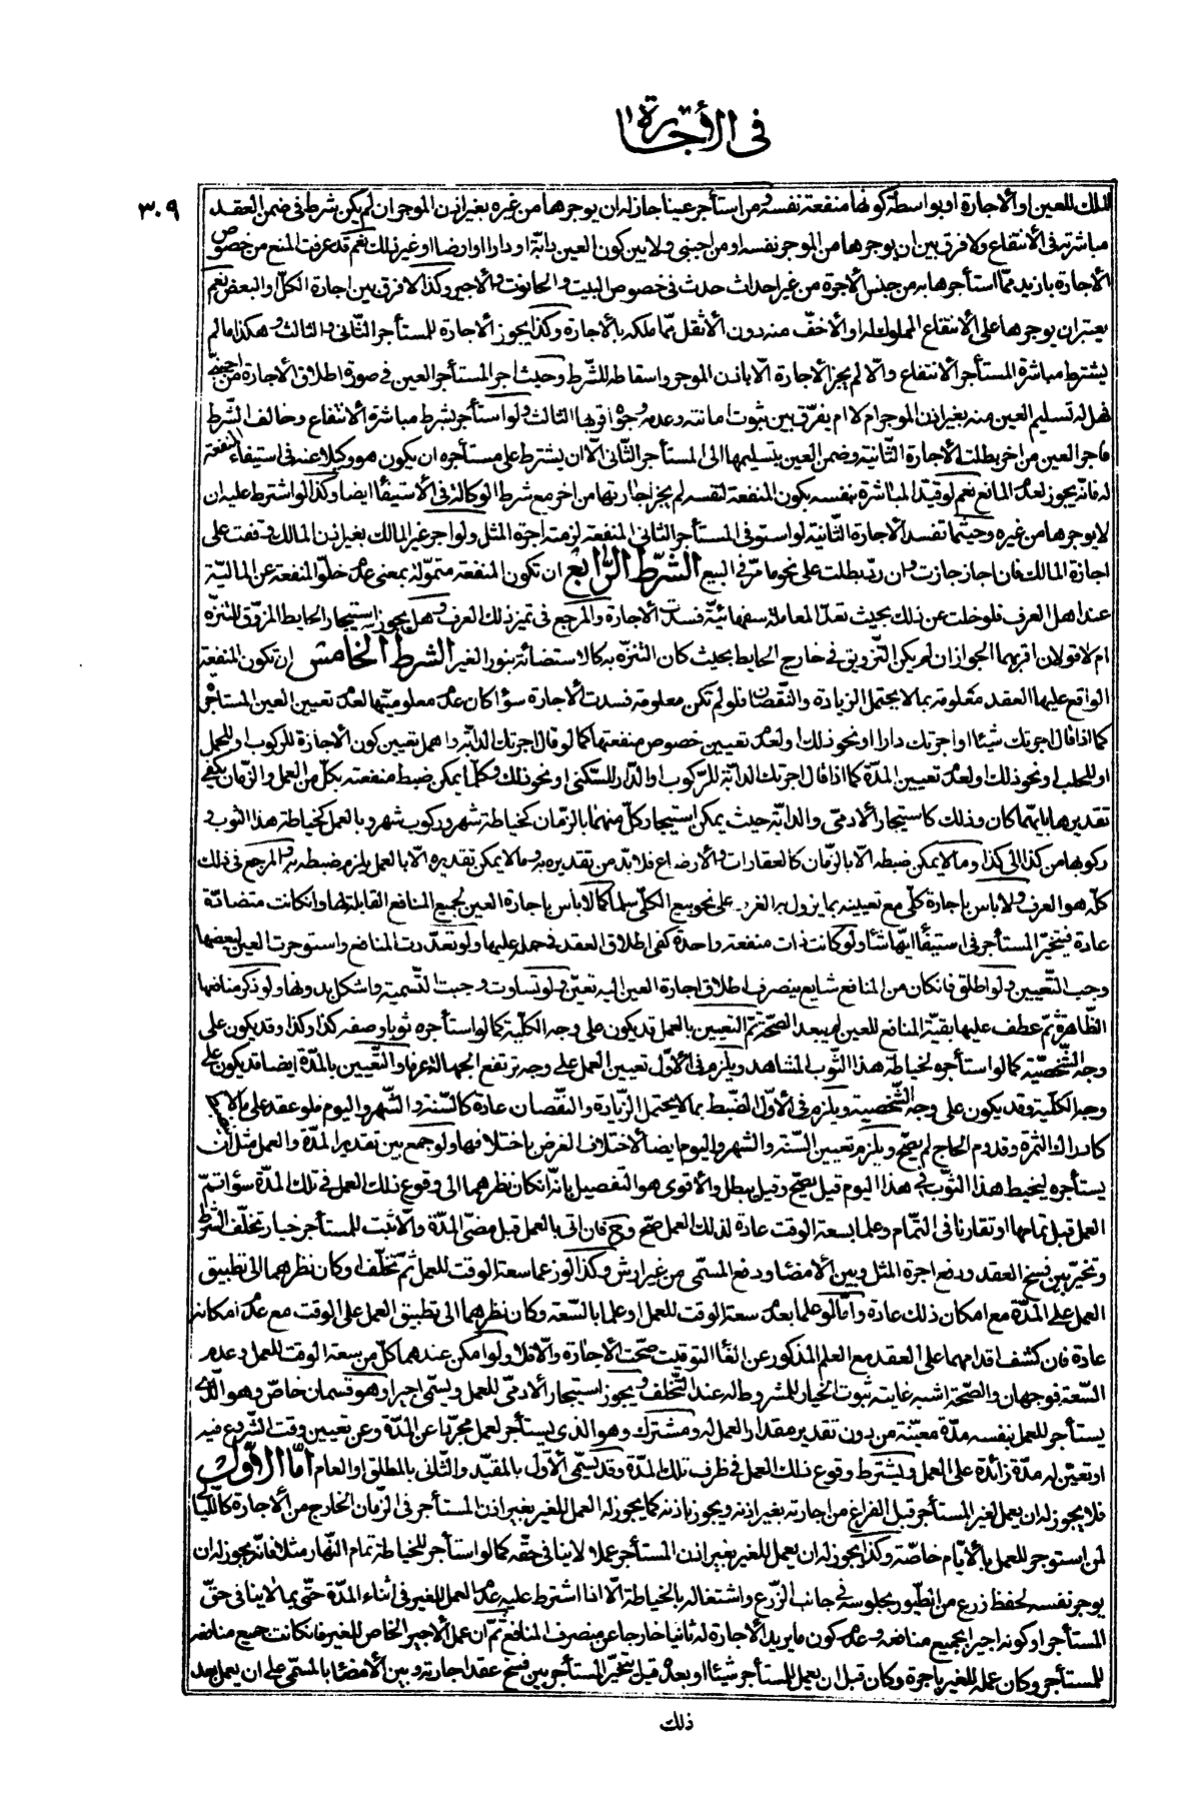 في الأجارة
٣٠٩
للملك للعين او الاجارة او بواسطة كونها منفعة نفسه ومن استأجر عينا جاز له ان يوجرها من غيره بغير اذن الموجر ان لم يكن شرط في ضمن العقد
مباشرته في الأنتفاع ولا فرق بين ان يوجرها من الموجر نفسه او من اجنبي ولا بين كون العين دابّة او دارا او ارضا او غير ذلك نعم قد عرفت المنع من خصوص
الأجارة بازيد ممّا استأجرها به من جنس الاجرة من غير احداث حدث في خصوص البيت والحانوت والأجير وكذا لا فرق بين اجارة الكلّ والبعض نعم
يعتبر ان يوجرها على الأنتفاع المملوك له او الأخفّ منه دون الأثقل ممّا ملكه بالأجارة وكذا يجوز الأجارة للمستأجر الثّاني والثالث وهكذا ما لم
يشترط مباشرة المستأجر الأنتفاع والّا لم يجز الأجارة الّا باذن الموجر واسقاطه للشّرط وحيث اجر المستأجر العين في صورة اطلاق الأجارة من اجنبيّ
فهل له تسليم العين منه بغير اذن الموجر ام لا ام يفرّق بين ثبوت امانته وعدمه وجوه اقربها الثالث ولو استأجر بشرط مباشرة الأنتفاع وخالف الشّرط
فاجر العين من اخر بطلت الأجارة الثّانية وضمن العين بتسليمها الى المستأجر الثّاني الّا ان يشترط على مستأجره ان يكون هو وكيلا عنه في استيفاء المنفعة
له فانّه يجوز لعدم المانع نعم لو قيد المباشرة بنفسه بكون المنفعة لنفسه لم يجز اجارتها من اخر مع شرط الوكالة في الأستيفاء ايضا وكذا لو اشترط عليه ان
لا يوجرها من غيره وحيثما تفسد الاجارة الثّانية لو استوفى المستأجر الثاني المنفعة لزمته اجرة المثل ولو اجر غير المالك بغير اذن المالك وقفت على
اجازة المالك فان اجاز جازت وان ردّ بطلت على نحو ما مرّ في البيع الشّرط الرّابع ان تكون المنفعة متموّلة بمعنى عدم خلوّ المنفعة عن الماليّة
عند اهل العرف فلو خلت عن ذلك بحيث تعدّ المعاملة سفهائيّة فسدت الأجارة والمرجع في تميز ذلك العرف وهل يجوز استيجار الحايط المزوّق للتنزّه
ام لا قولان اقربهما الجواز ان لم يكن التّزويق في خارج الحايط بحيث كان التنزّه به كالاستضائة بنور الغير الشرط الخامس ان تكون المنفعة
الواقع عليها العقد معلومة بما لا يحتمل الزيادة والنّقصان فلو لم تكن معلومة فسدت الأجارة سواء كان عدم معلوميّتها لعدم تعيين العين المستأجرة
كما اذا قال اجرتك شيئا او اجرتك دارا او نحو ذلك او لعدم تعيين خصوص منفعتها كما لو قال اجرتك الدابّة واهمل تعيين كون الأجازة للركوب او للحمل
او للحلب او نحو ذلك او لعدم تعيين المدّة كما اذا قال اجرتك الدابّة للرّكوب او الدّار للسّكنى او نحو ذلك وكلّما يمكن ضبط منفعته بكلّ من العمل والزّمان يكفي
تقديرها بايّهما كان وذلك كاستيجار الأدمي والدابّة حيث يمكن استيجار كلّ منهما بالزّمان كخياطة شهر وركوب شهر وبالعمل كخياطة هذا الثوب و
ركوبها من كذا الى كذا وما لا يمكن ضبطه الّا بالزّمان كالعقارات والأرضاع فلا بدّ من تقديره به وما لا يمكن تقديره الّا بالعمل يلزم ضبطه به والمرجع في ذلك
كلّه هو العرف ولا باس باجارة كلّي مع تعيينه بما يزول به الغرر على نحو بيع الكلّي سلما كما لا بأس باجارة العين لجميع المنافع القابلة لها وان كانت متضادّة
عادة فيتخيّر المستأجر في استيفاء ايّها شاء ولو كانت ذات منفعة واحدة كفى اطلاق العقد في حمله عليها ولو تعدّدت المنافع واستوجرت العين لبعضها
وجب التّعيين ولو اطلق فان كان من المنافع شايع ينصرف اطلاق اجارة العين اليه تعيّن ولو تساوت وجبت التّسمية واشكل بدونها ولو ذكر منافعها
الظّاهرة ثمّ عطف عليها بقيّة المنافع للعين لم يبعد الصّحّة ثمّ التعيين بالعمل قد يكون على وجه الكلّية كما لو استأجره ثوبا وصفه كذا وكذا وقد يكون على
وجه الشّخصيّة كما لو استأجره لخياطة هذا الثّوب المشاهد ويلزم في الأوّل تعيين العمل على وجه ترتفع الجهالة عرفا والتّعيين بالمدّة ايضا قد يكون على
وجه الكلّية وقد يكون على وجه الشّخصية ويلزم في الأوّل الضّبط بما لا يحتمل الزّيادة والنّقصان عادة كالسّنة والشّهر واليوم فلو عقد على ما لا
كادراك الثمرة وقدوم الحاج لم يصحّ ويلزم تعيين السّنة والشهر واليوم ايضا لاختلاف الغرض باختلافها ولو جمع بين تقدير المدّة والعمل مثل ان
يستأجره ليخيط هذا الثّوب في هذا اليوم قيل يصحّ وقيل يبطل والأقوى هو التّفصيل بانّه ان كان نظرهما الى وقوع ذلك العمل في تلك المدّة سواء تمّ
العمل قبل تمامها او تقارنا في التّمام وعلما بسعة الوقت عادة لذلك العمل صحّ وح فان اتى بالعمل قبل مضيّ المدّة والّا ثبت للمستأجر خيار تخلّف الشّرط
وتخيّر بين فسخ العقد ودفع اجرة المثل وبين الأمضاء ودفع المسمّى من غير ارش وكذا لو زعما سعة الوقت للعمل ثمّ تخلّف او كان نظرهما الى تطبيق
العمل على المدّة مع امكان ذلك عادة وامّا لو علما بعدم سعة الوقت للعمل او علما بالسّعة وكان نظرهما الى تطبيق العمل على الوقت مع عدم امكانه
عادة فان كشف اقدامهما على العقد مع العلم المذكور عن الغاء التوقيت صحّت الأجارة والّا فلا ولو امكن عندهما كلّ من سعة الوقت للعمل وعدم
السّعة فوجهان والصّحّة اشبه غايته ثبوت الخيار للمشروط له عند التّخلف ويجوز استيجار الأدمي للعمل ويسمّى اجيرا وهو قسمان خاصّ وهو الّذي
يستأجر للعمل بنفسه مدّة معيّنة من دون تقدير مقدار العمل له ومشترك وهو الذي يستأجر لعمل مجرّدا عن المدّة وعن تعيين وقت الشّروع فيه
او تعيّن له مدّة زائدة على العمل ويشترط وقوع ذلك العمل في ظرف تلك المدّة وقد يسمّى الأوّل بالمقيّد والثّاني بالمطلق او العام امّا الأوّل
فلا يجوز له ان يعمل لغير المستأجر قبل الفراغ من اجارته بغير اذنه ويجوز باذنه كما يجوز له العمل للغير بغير اذن المستأجر في الزّمان الخارج من الأجارة كاللّيالي
لمن استوجر للعمل بالأيّام خاصّة وكذا يجوز له ان يعمل للغير بغير اذن المستأجر عملا لا ينافي حقّه كما لو استأجر للخياطة تمام النّهار مثلا فانّه يجوز له ان
يوجر نفسه لحفظ زرع من الطّيور بجلوسه في جانب الزّرع واشتغاله بالخياطة الّا اذا اشترط عليه عدم العمل للغير في اثناء المدّة حتّى بما لا ينافي حقّ
المستأجر او كونه اجيرا بجميع منافعه وعدم كون ما يريد الأجارة له ثانيا خارجا عن منصرف المنافع ثمّ ان عمل الأجير الخاص للغير فان كانت جميع منافعه
للمستأجر وكان عمله للغير باجرة وكان قبل ان يعمل للمستأجر شيئا او بعده قيل يتخيّر المستأجر بين فسخ عقد اجارته وبين الأمضاء بالمسمّى على ان يعمل بعد
ذلك